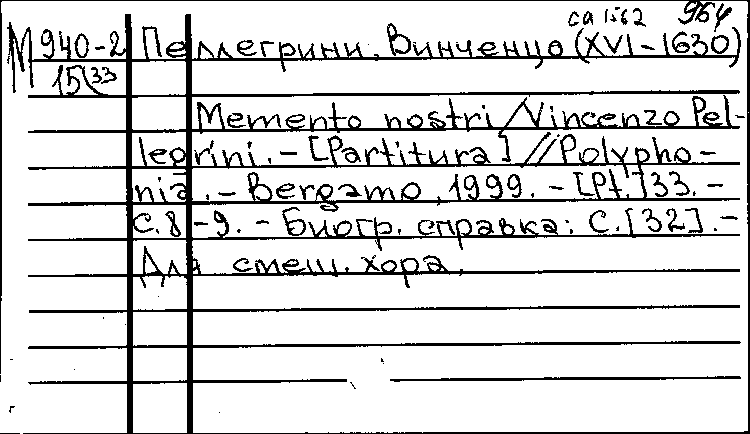 са 1562 964
М 940-2 Пеллегрини, Винченцо (XVI-1630)
15(33
Memento nostri / Vincenzo Pel-
legrini. - [Partitura] // Polypho-
nia. - Bergamo, 1999. - [Pt.] 33. -
С. 8-9. - Биогр. справка: С. [32]. -
Для смеш. хора.